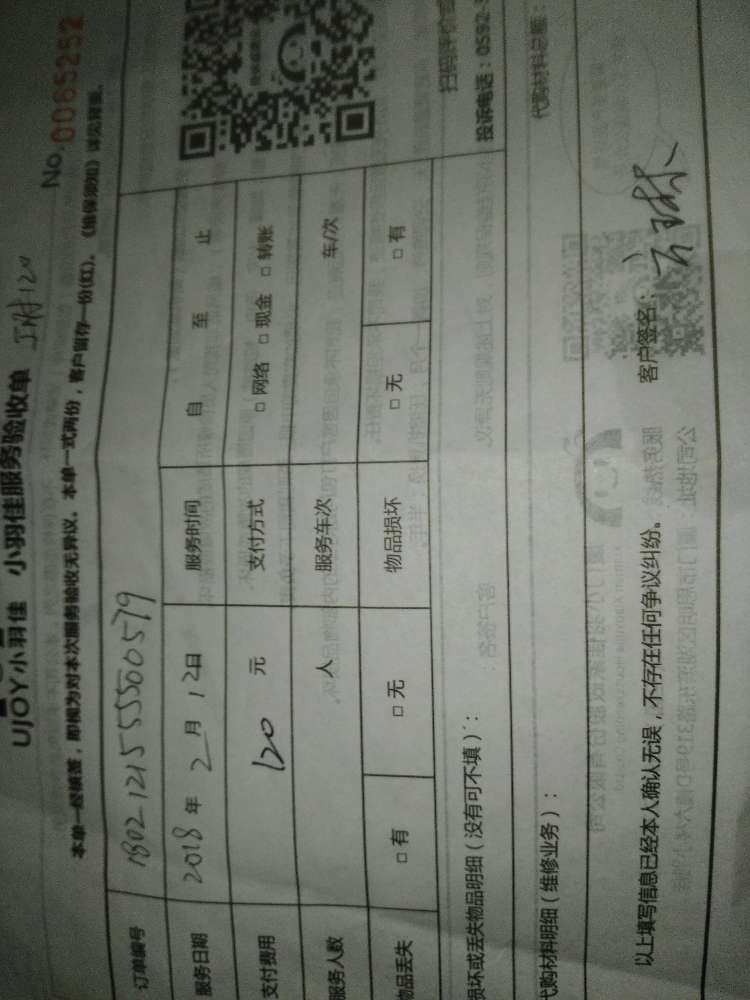 UJOY小羽佳 小羽佳服务验收单
No.0065252
本单一经核签，即视为对本次服务验收无异议。本单一式两份，客户留存一份(红)。《维保须知》详见背面。
订单编号 180212155500579
服务日期 2018年2月12日 服务时间 自 至 止
支付费用 120元 支付方式 □网络 □现金 □转账
服务人数 人 服务车次 车/次
物品丢失 □有 □无 物品损坏 □无 □有
扫码评价
投诉电话：0592-
损坏或丢失物品明细（没有可不填）：
代购材料明细（维修业务）：
代购材料总额：
以上填写信息已经本人确认无误，不存在任何争议纠纷。 客户签名：